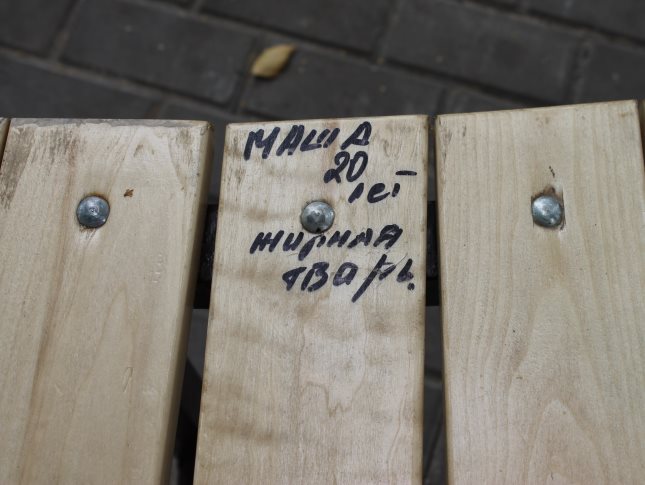 МАША
20
лет
жирная
тварь.